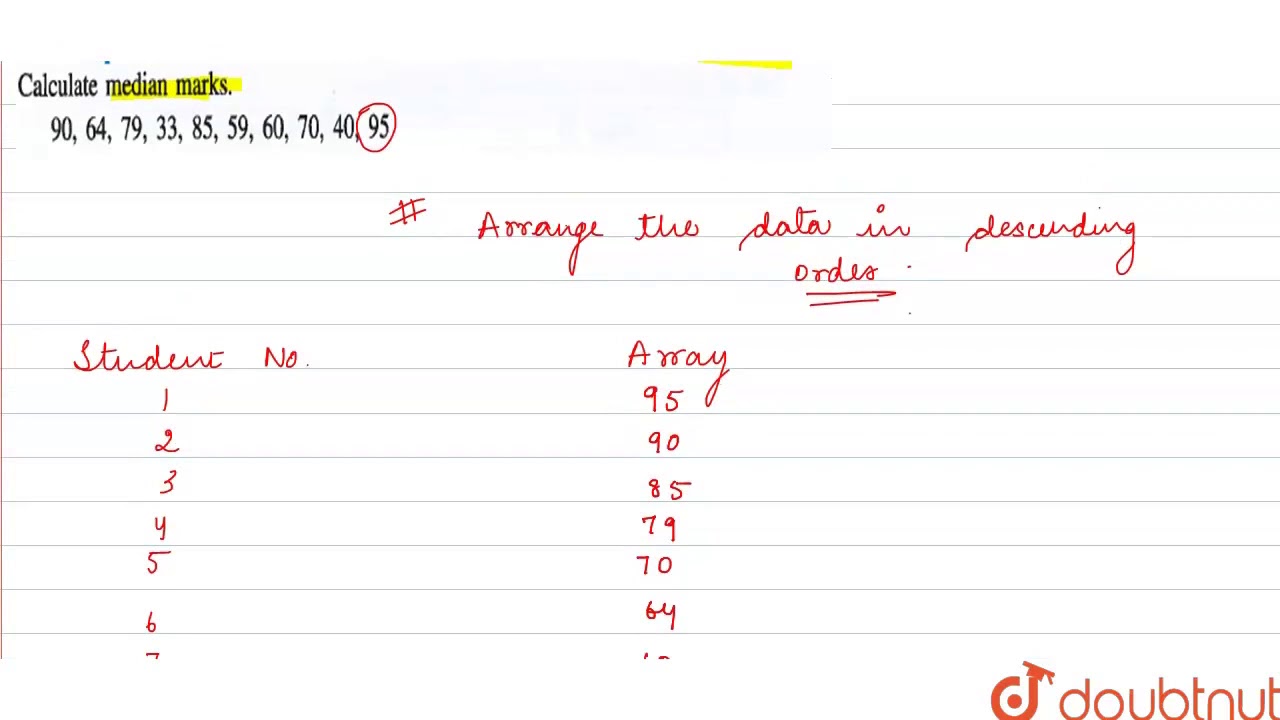 Calculate median marks.
90, 64, 79, 33, 85, 59, 60, 70, 40, 95
# Arrange the data in descending
order.
Student No. Array
1 95
2 90
3 85
4 79
5 70
6 64
doubtnut